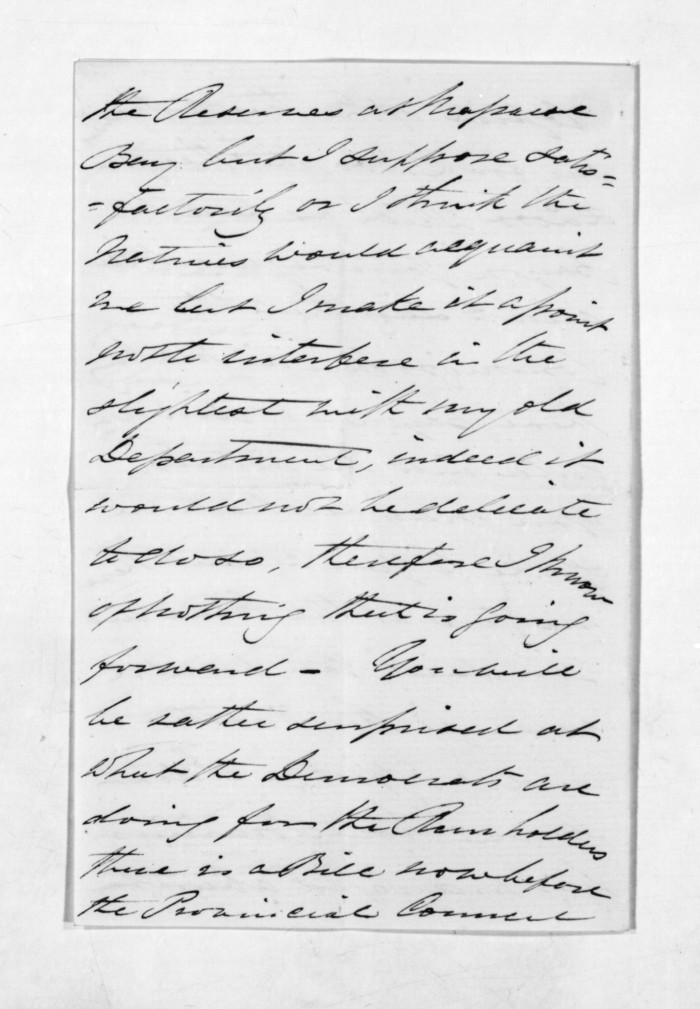 the Reserves at Massacre
Bay but I suppose satis=
=factorily or I think the
Natives would acquaint
me but I make it a point
not to interfere in the
slightest with my old
Department, indeed it
would not be delicate
to do so, therefore I know
of nothing that is going
forward – You will
be rather surprised at
what the Democrats are
doing for the Run holders
there is a Bill now before
the Provincial Council